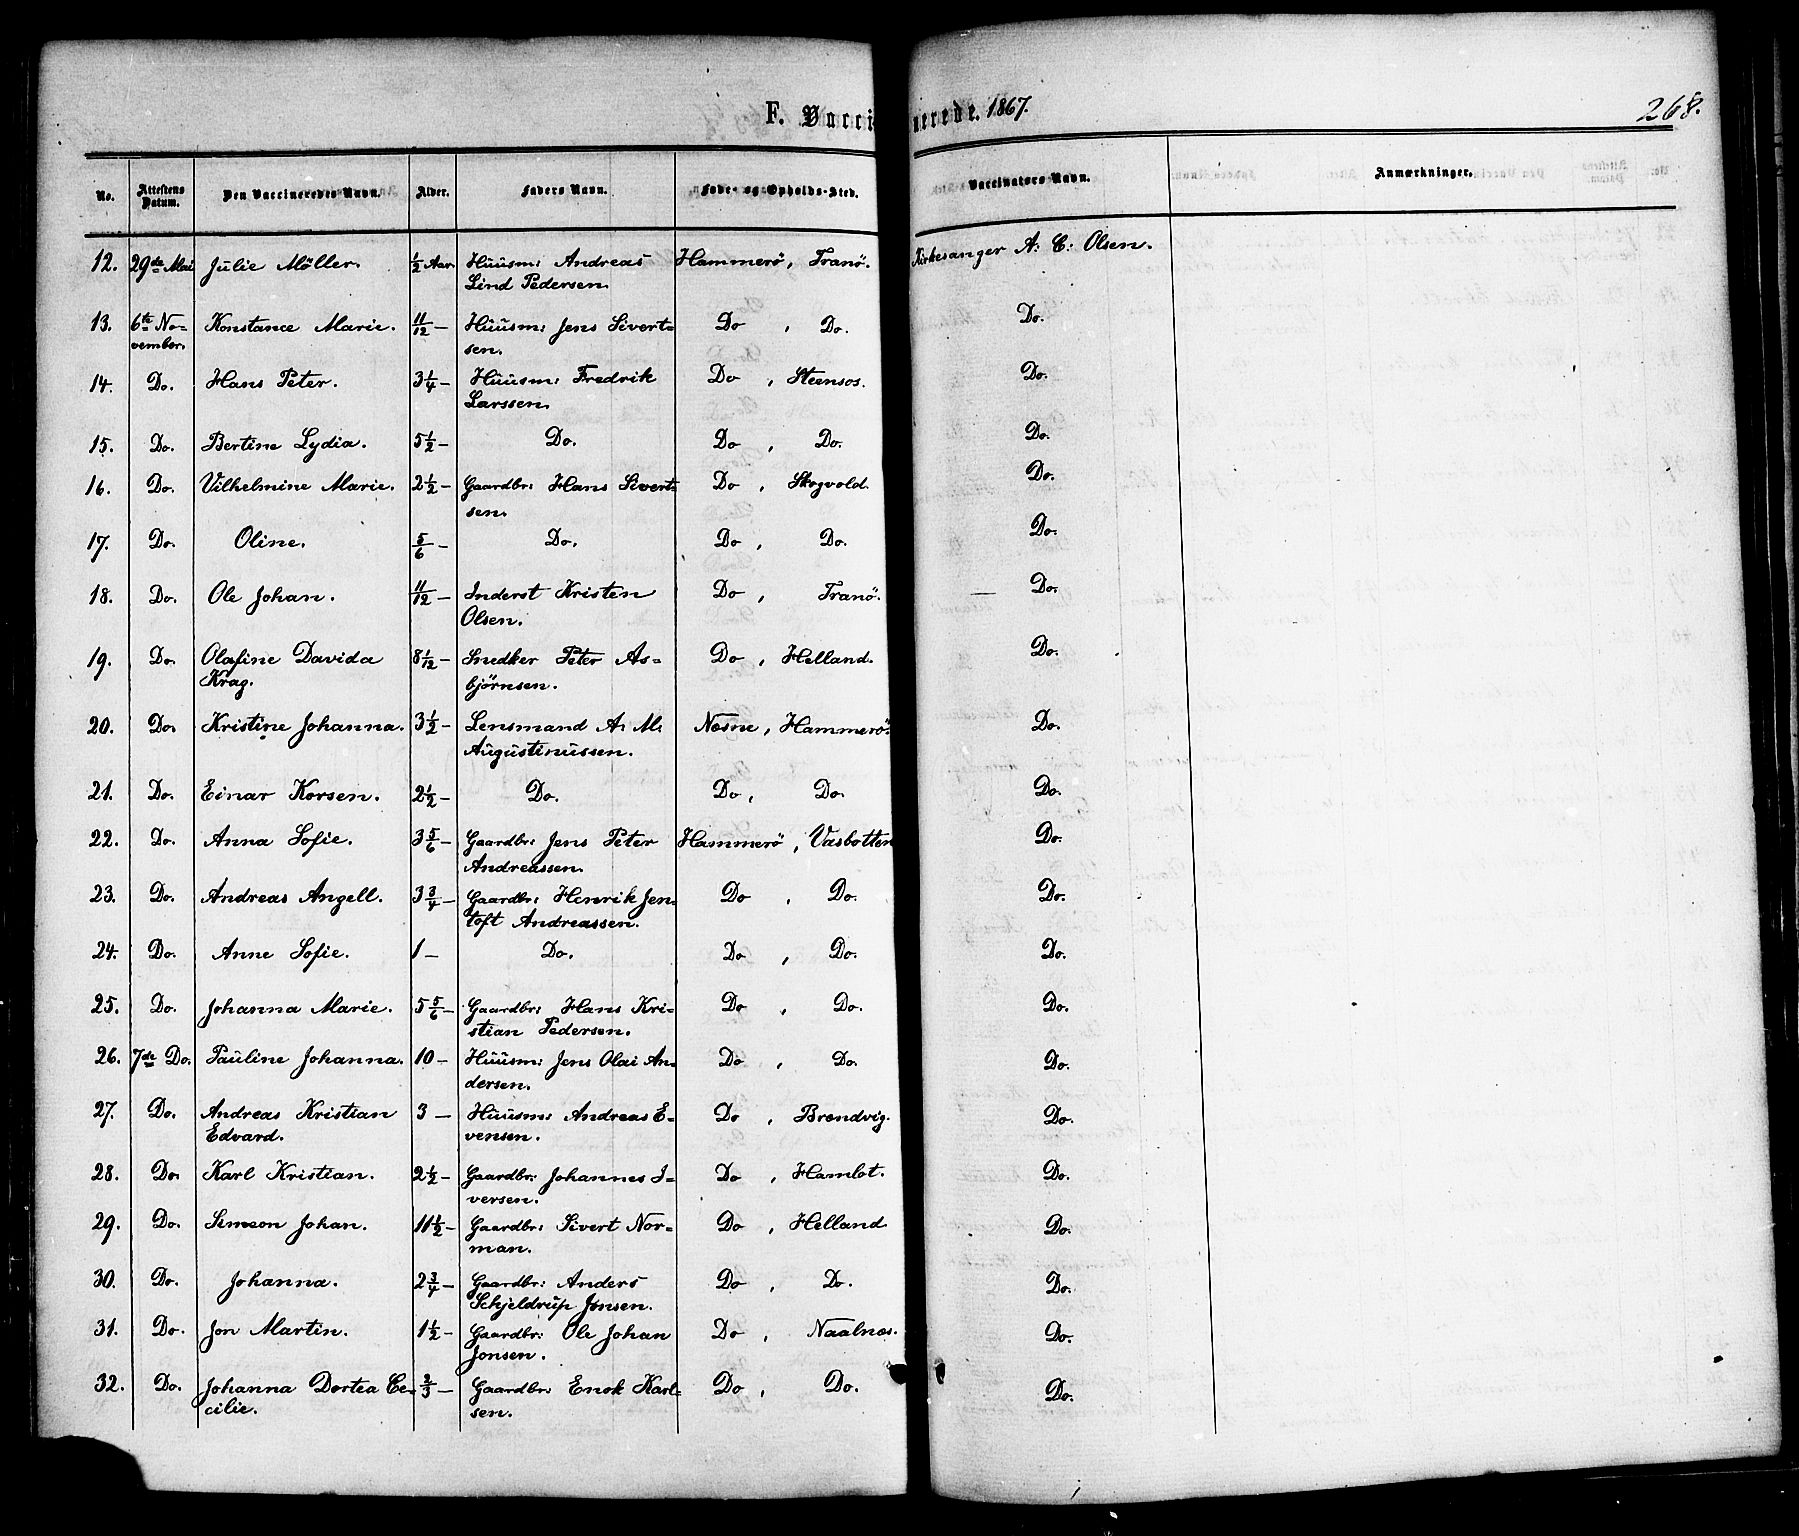 F. Vaccinerede. 1867.
268.
No. Attestens Datum. Den Vaccineredes Navn. Alder. Faders Navn. Føde- og Opholds-Sted. Vaccinators Navn. Anmærkninger.
12. 29de Mai Julie Møller. 1/2 Aar. Huusm: Andreas Hammerö, Tranö. Kirkesanger A: C: Olsen.
Lind Pedersen.
13. 6te No- Konstance Marie. 11/12 – Huusm: Jens Sivert- Do , Do. Do.
vember. sen.
14. Do. Hans Peter. 3 1/4 – Huusm: Fredrik Do , Steensos. Do.
Larssen.
15. Do. Bertine Lydia. 5 1/2 – Do. Do , Do. Do.
16. Do. Vilhelmine Marie. 2 1/2 – Gaardbr: Hans Sivert- Do , Skogvold. Do.
sen.
17. Do. Oline. 5/6 – Do. Do , Do. Do.
18. Do. Ole Johan. 11/12 – Inderst Kristen Do , Tranö. Do.
Olsen.
19. Do. Olafine Davida 8 1/12 – Snedker Peter As- Do , Helland. Do.
Krag. bjørnsen.
20. Do. Kristine Johanna. 3 1/2 – Lensmand A: M: Næsne, Hammerö. Do.
Augustinussen.
21. Do. Einar Korsen. 2 1/2 – Do. Do , Do. Do.
22. Do. Anna Sofie. 3 5/6 – Gaardbr: Jens Peter Hammerö, Vasbotten Do.
Andreassen.
23. Do. Andreas Angell. 3 3/4 – Gaardbr: Henrik Jen- Do , Do. Do.
toft Andreassen.
24. Do. Anne Sofie. 1 – Do. Do , Do. Do.
25. Do. Johanna Marie. 5 5/6 – Gaardbr: Hans Kri- Do , Do. Do.
stian Pedersen.
26. 7de Do. Pauline Johanna. 10 – Huusm: Jens Olai An- Do , Do. Do.
dersen.
27. Do. Andreas Kristian 3 – Huusm: Andreas E- Do , Brændvig. Do.
Edvard. vensen.
28. Do. Karl Kristian. 2 1/2 – Gaardbr: Johannes I- Do , Hamlot. Do.
versen.
29. Do. Simeon Johan. 11 1/2 – Gaardbr: Sivert Nor- Do , Helland Do.
man.
30. Do. Johanna. 2 3/4 – Gaardbr: Anders Do , Do. Do.
Schjeldrup Jonsen.
31. Do. Jon Martin. 1 1/2 – Gaardbr: Ole Johan Do , Naalnæs. Do.
Jonsen.
32. Do. Johanna Dortea Ce- 2/3 – Gaardbr: Enok Karl- Do , Do. Do.
cilie. sen.